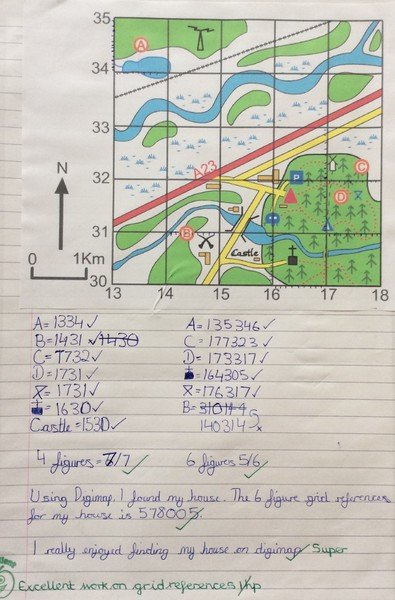 35
34
33
32
31
30
13 14 15 16 17 18
N
0 1Km
A
A23
P
C
D
B
i
Castle
A = 1334 ✓ A = 135346 ✓
B = 1431 ✓ 1430 C = 177323 ✓
C = 1732 ✓ D = 173317 ✓
D = 1731 ✓ = 164305 ✓
= 1731 ✓ = 176317 ✓
= 1630 ✓ B =
Castle = 1530 ✓ 140314 x
4 figures = 7/7 ✓ 6 figures 5/6 ✓
Using Digimap I found my house. The 6 figure grid references
for my house is 578005. ✓
I really enjoyed finding my house on digimap ✓ Super
Excellent work on grid references 1hp